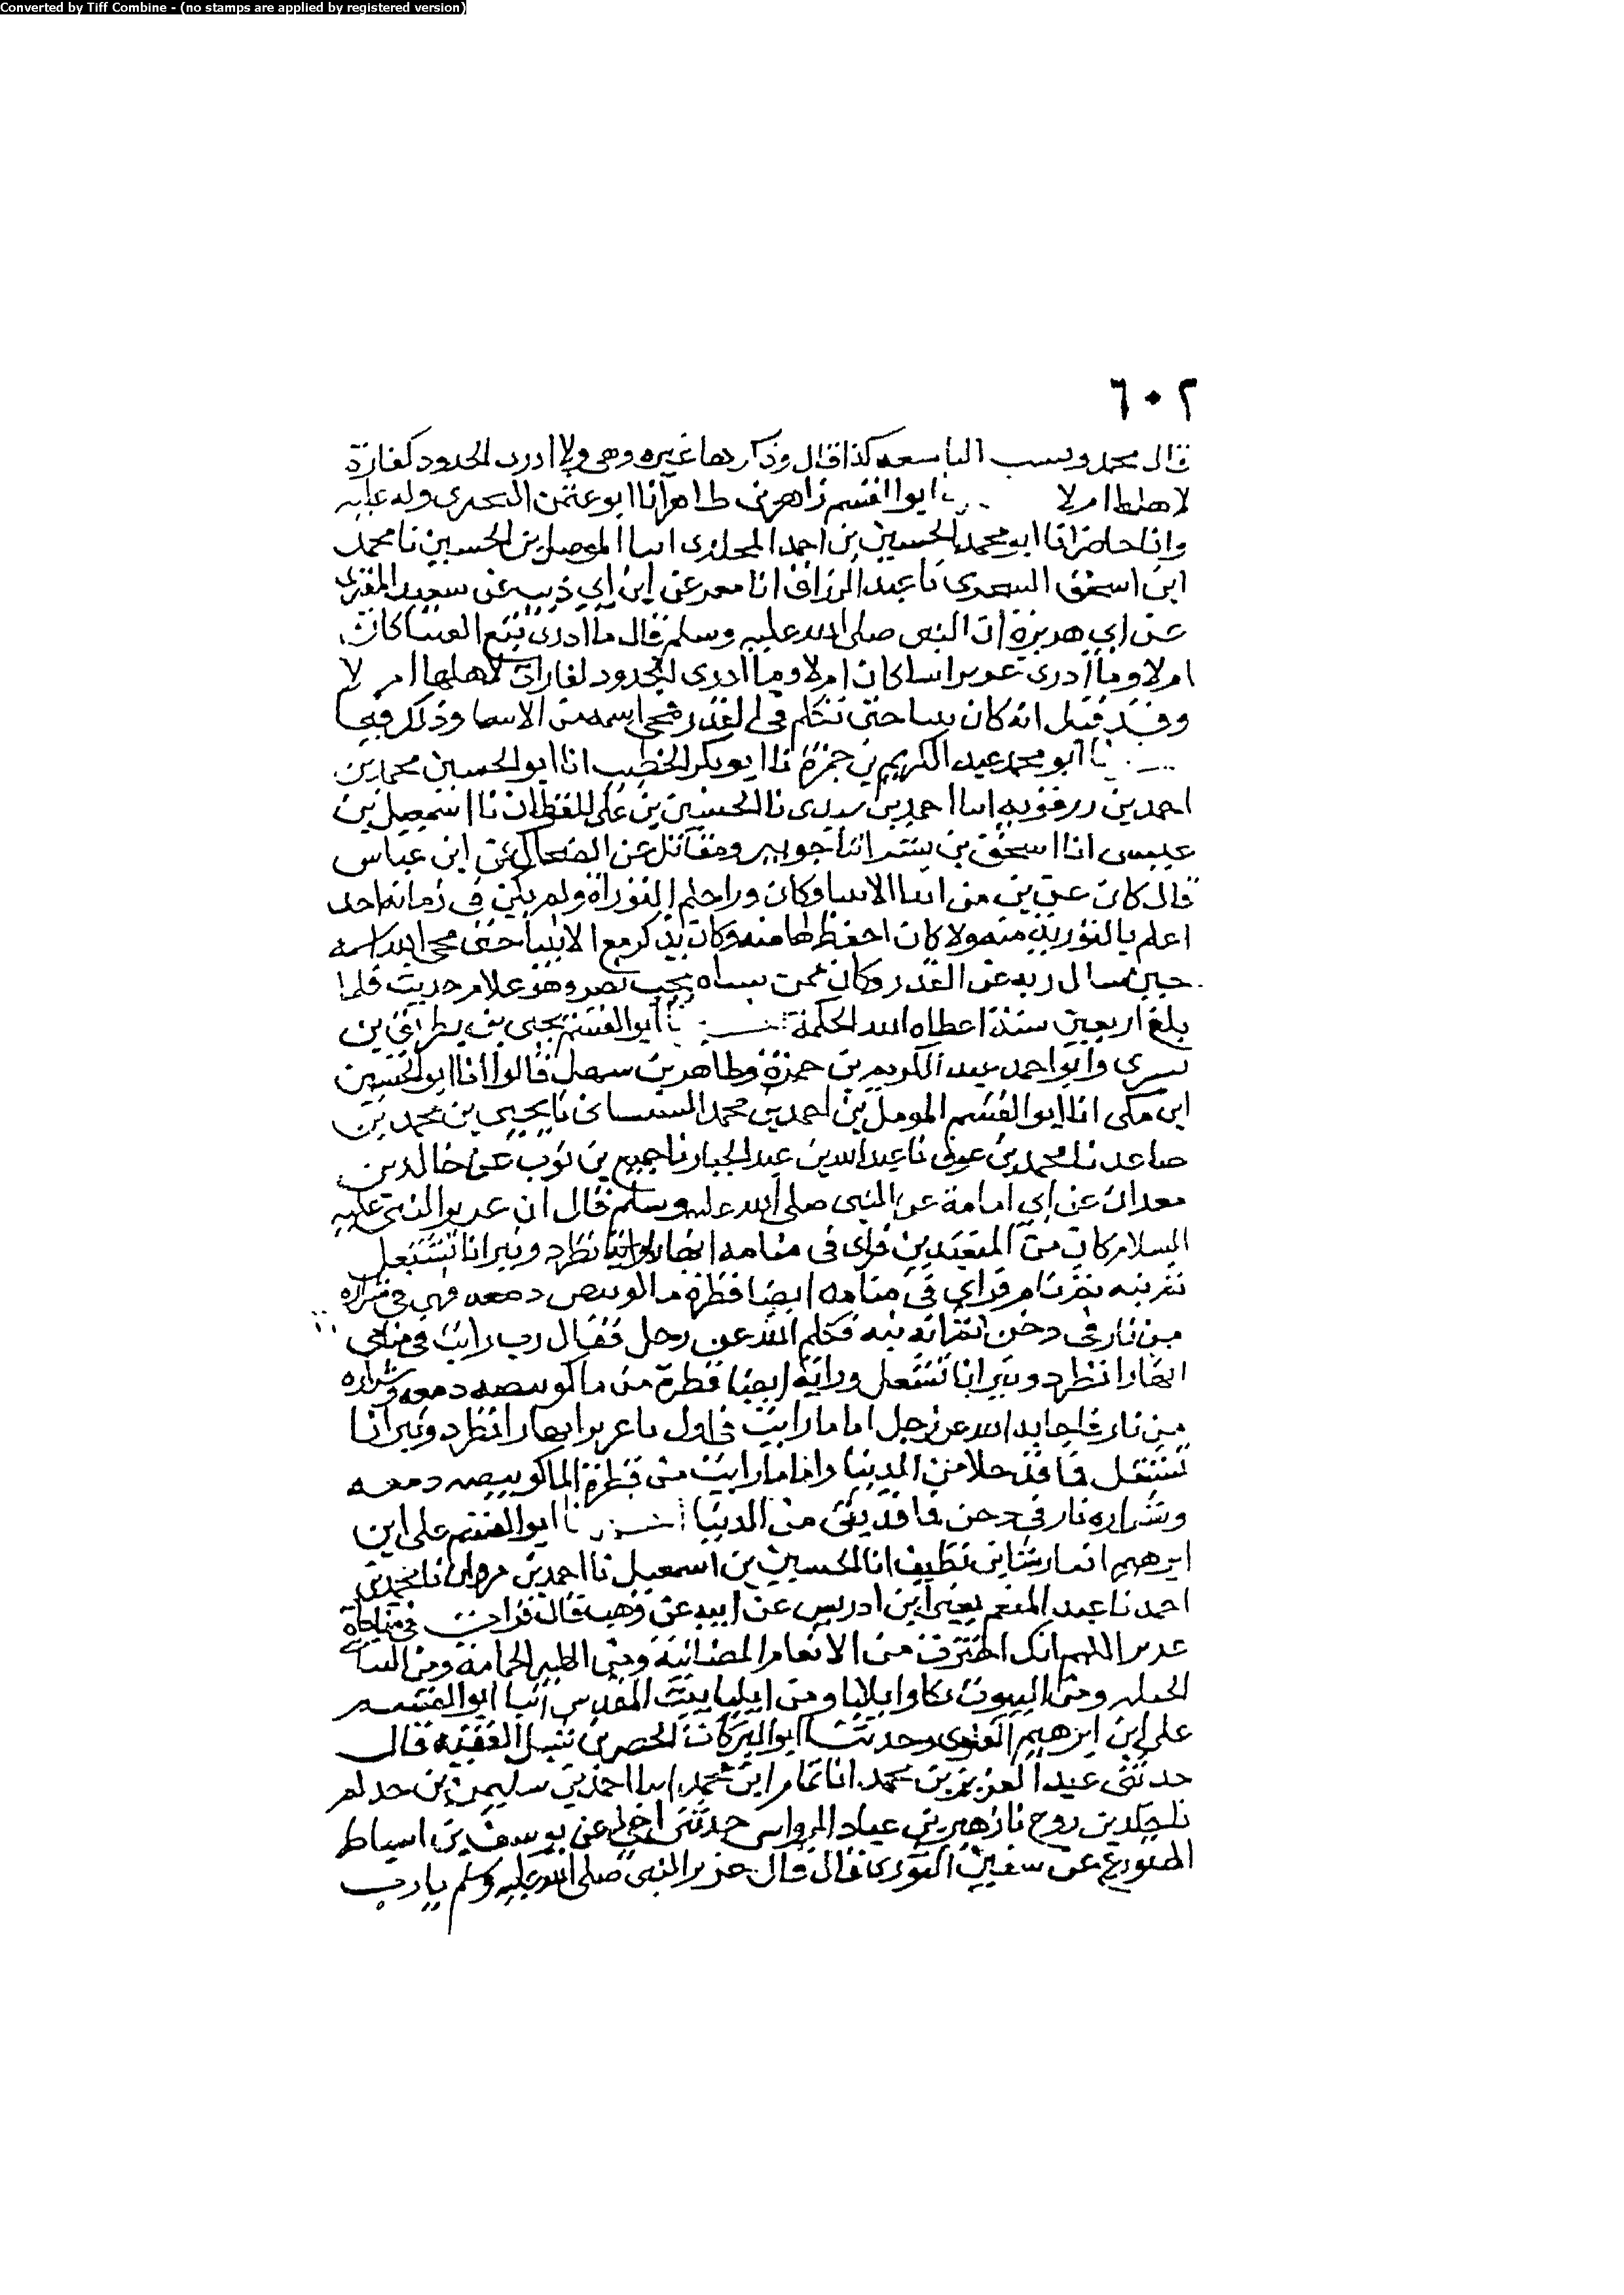 Converted by Tiff Combine - (no stamps are applied by registered version)
٦٠٢
قال محمد ونسب كذا قال وذكر رها غيره وهى ولا ادرى الحدود كفارة
لاهلها ام لا نا ابوا القسم زاهر بن طاهر انا ابو عثمن البحيرى وله عليه
وانا حاضر انا ابو محمد الحسين بن احمد المخلدى انبا الموصل بن الحسين نا محمد
ابن اسحق السحرى نا عبد الرزاق انا معمر عن ابن ابي ذيب عن سعيد المقبرى
عن ابي هريرة ان النبى صلى الله عليه وسلم قال ما ادرى تبع العينا كان
ام لا وما ادرى عزير انبيا كان ام لا وما ادرى الحدود لفارات لاهلها ام لا
وقد قيل انه كان نبيا حتى تكلم فى القدر فمحى اسمه من الاسما وذلك فيما
نا ابو محمد عبد الكريم بن حمزة نا ابو بكر الخطيب انا ابو الحسين محمد بن
احمد بن ررقويه انبا احمد بن سندى نا الحسين بن على القطان نا اسمعيل بن
عيسى انا اسحق بن بشر انا جويبر ومقاتل عن الضحاك عن ابن عباس
قال كان عزير من ابنا الانبيا وكان وراحلم التوراة ولم يكن فى زمانه احد
اعلم بالتورية منه ولا كان احفظ لها منه وكان يذكر مع الانبيا حتى محى الله اسمه
حين سال ربه عن القدر وكان ممن سباه بخت نصر وهو غلام حديث فلما
بلغ اربعين سنة اعطاه الله الحكمة نا ابو القسم يحيى بن بطريق بن
بسرى وابو احمد عبد الكريم بن حمزة وطاهر بن سهل قالوا انا ابو الحسين
ابن مكى انا ابو القسم المومل بن احمد بن محمد السسانى نا يحيى بن محمد بن
صاعد نا محمد بن عوف نا عبد الله بن عبد الجبار نا جميع بن ثوب عن خالد بن
معدان عن ابي امامة عن النبى صلى الله عليه وسلم قال ان عزير النبى عليه
السلام كان من المتعبدين فراى فى منامه انهارا تطرد ونيرانا تشتعل
ثم نبه ثم نام فراى فى منامه ايضا قطرة من ما كوبيص دمعه فهى فى شراره
من نار فى دخن ثم انه نبه فكلم الله عز وجل فقال رب رايت فى منامى
انهارا تطرد ونيرانا تشتعل ورايت ايضا قطرة من ما كوبيصه دمعه وشراره
من نار فاجابه الله عز وجل اما ما رايت فى اول يا عزير انهارا تطرد ونيرانا
تشتعل فما قد خلا من الدنيا واما ما رايت من قطرة الما كوبيصه دمعه
وشراره نار فى دخن فما قد بقى من الدنيا نا ابو القسم على ابن
ابرهيم انا رشا بن نظيف انا الحسين بن اسمعيل نا احمد بن مروان نا محمد بن
احمد نا عبد المنعم يعنى ابن ادريس عن ابيه عن وهب قال قرات فى مناجاة
عزير اللهم انك اخترت من الانعام الضانية ومن الطير الحمامة ومن النبات
الحبله ومن البيوت بكا وايليا ومن ايليا بيت المقدس انبا ابو القسم
على بن ابرهيم العلوى وحدثنا ابو البركات الخضر بن شبل الفقيه قال
حدثنى عبد العزيز بن محمد انا تمام ابن محمد انبا احمد بن سليمن بن حدلم
نا يزيد بن روح نا زهير بن عباد الرواسى حدثنى اخى عن يوسف بن اسباط
المتورع عن سفين الثورى قال قال عزير النبى صلى الله عليه وسلم يا رب